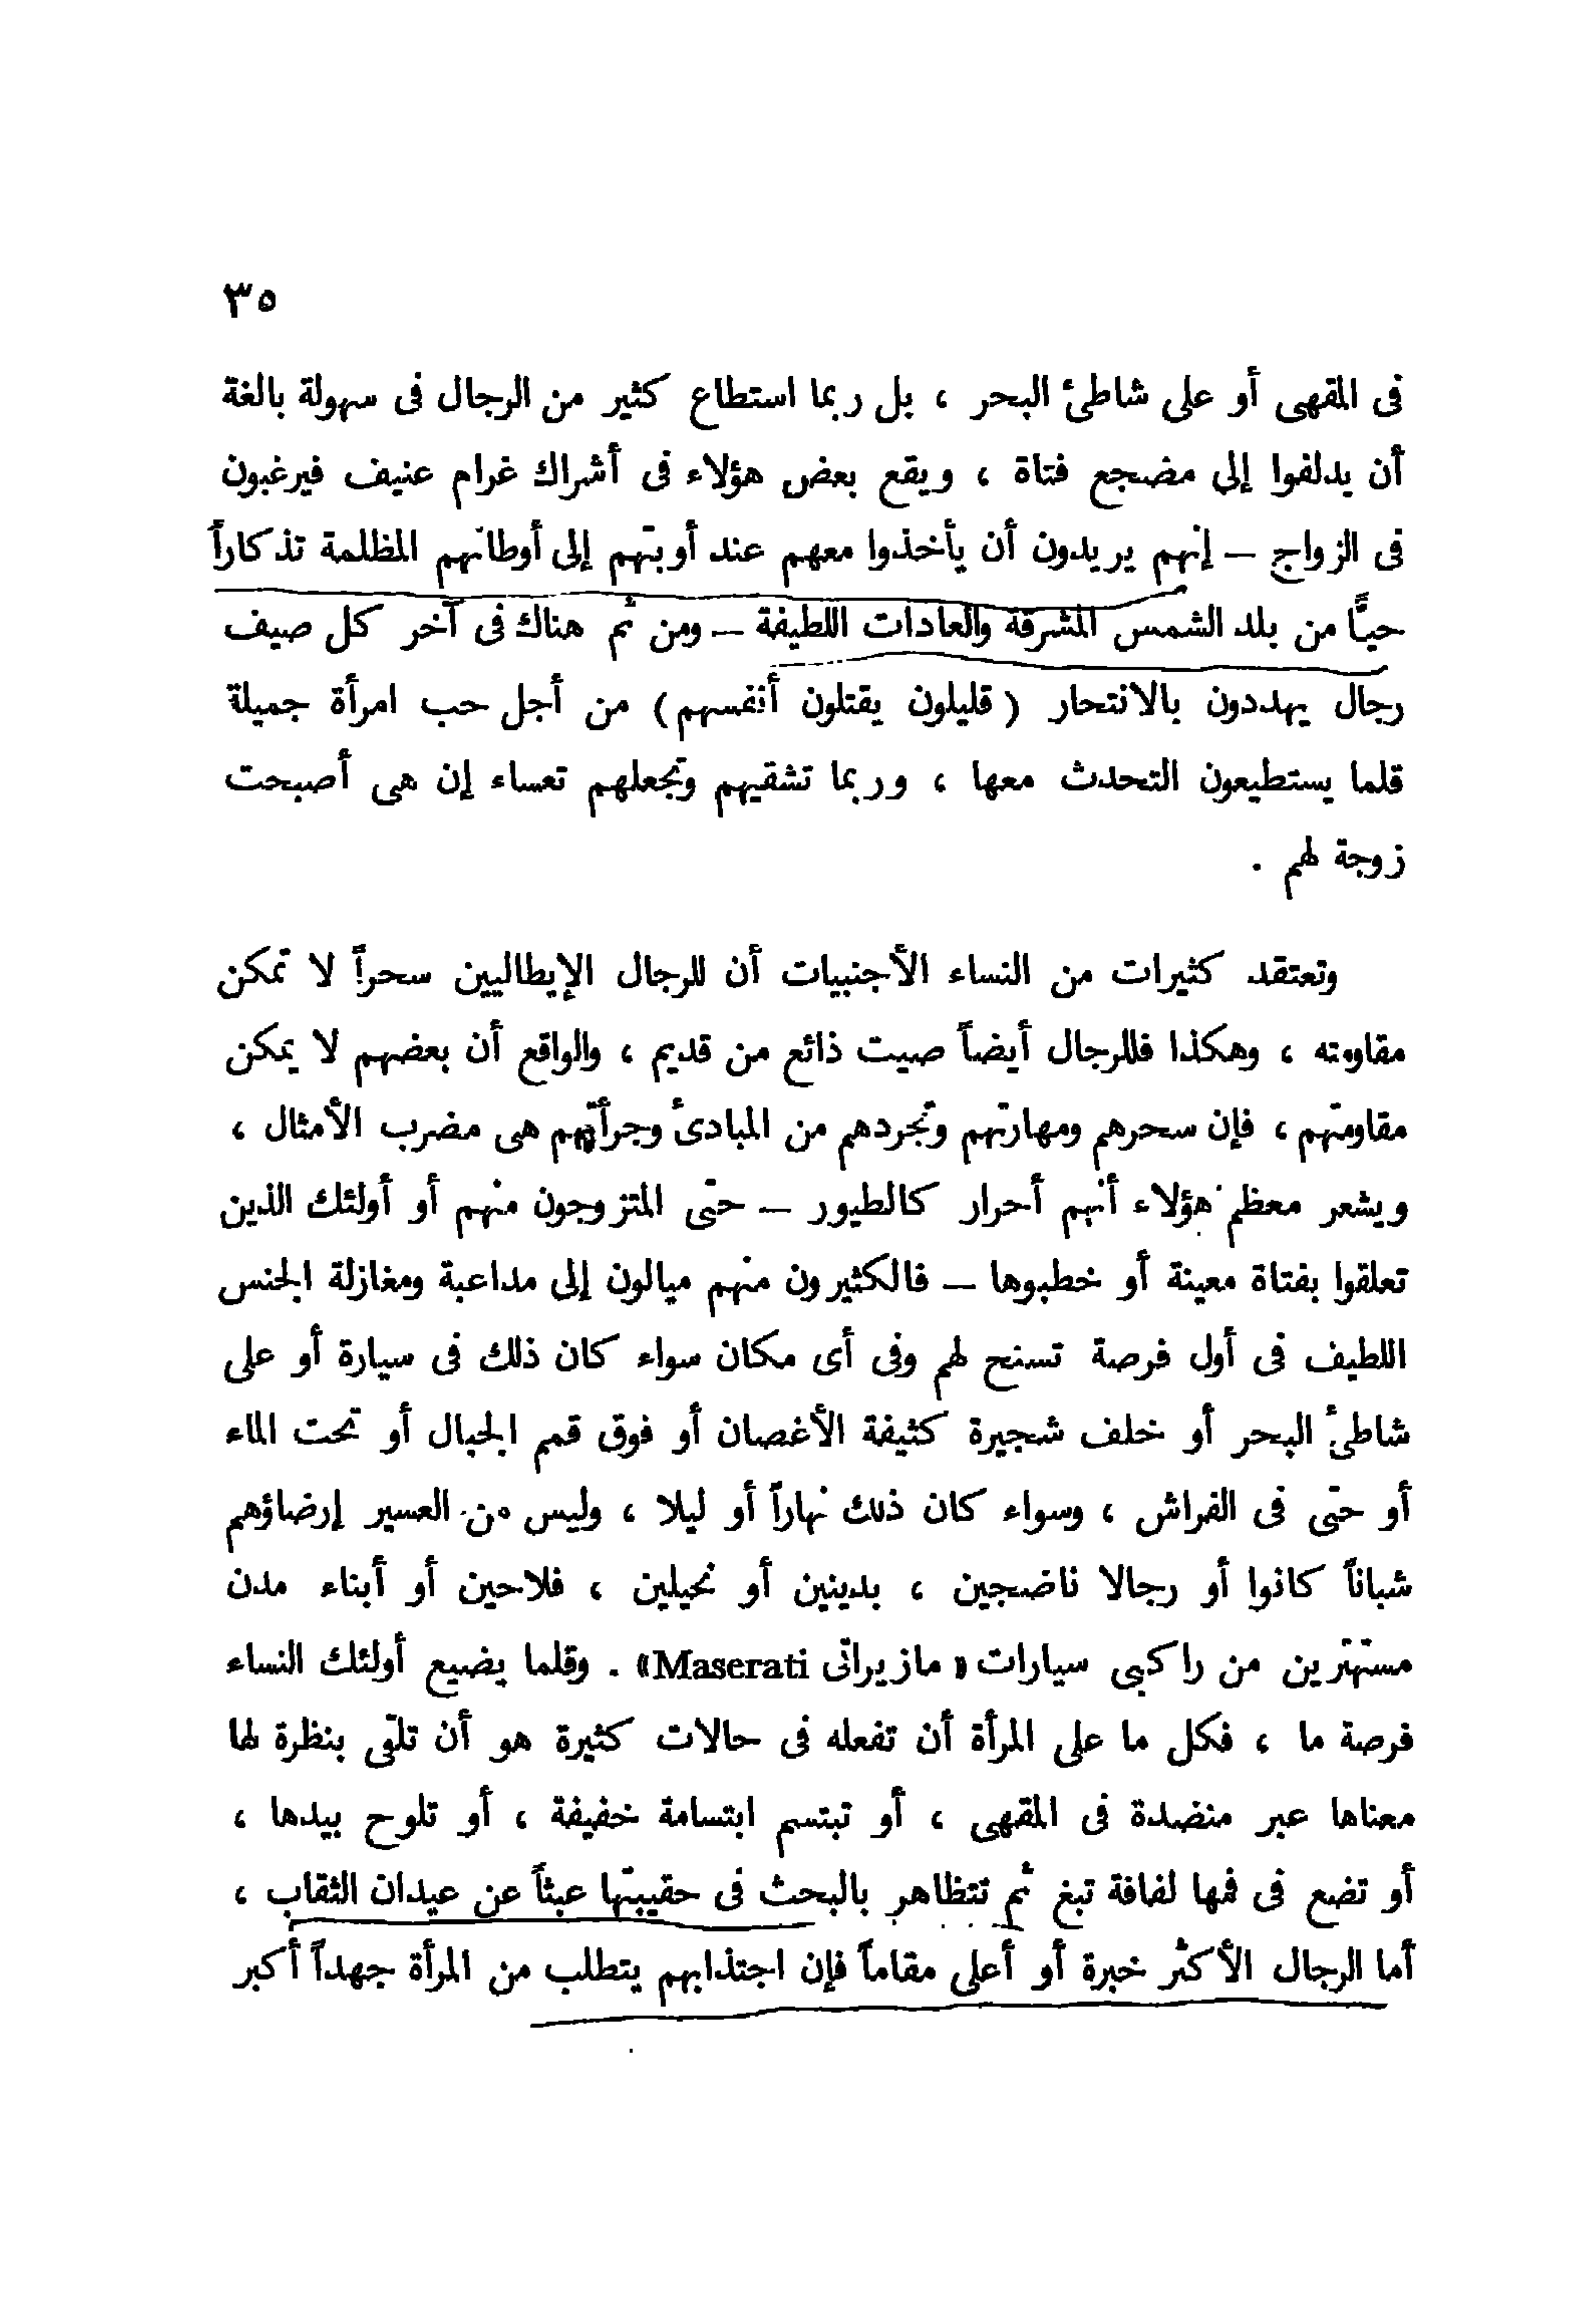 ٣٥
فى المقهى أو على شاطئ البحر ، بل ربما استطاع كثير من الرجال فى سهولة بالغة
أن يدلفوا إلى مضجع فتاة ، ويقع بعض هؤلاء فى أشراك غرام عنيف فيرغبون
فى الزواج – إنهم يريدون أن يأخذوا معهم عند أوبتهم إلى أوطانهم المظلمة تذكاراً
حيًّا من بلد الشمس المشرقة والعادات اللطيفة – ومن ثم هناك فى آخر كل صيف
رجال يهددون بالانتحار ( قليلون يقتلون أنفسهم ) من أجل حب امرأة جميلة
قلما يستطيعون التحدث معها ، وربما تشقيهم وتجعلهم تعساء إن هى أصبحت
زوجة لهم .
وتعتقد كثيرات من النساء الأجنبيات أن للرجال الإيطاليين سحراً لا تمكن
مقاومته ، وهكذا فللرجال أيضاً صيت ذائع من قديم ، والواقع أن بعضهم لا يمكن
مقاومتهم ، فإن سحرهم ومهارتهم وتجردهم من المبادئ وجرأتهم هى مضرب الأمثال ،
ويشعر معظم هؤلاء أنهم أحرار كالطيور – حتى المتزوجون منهم أو أولئك الذين
تعلقوا بفتاة معينة أو خطبوها – فالكثيرون منهم ميالون إلى مداعبة ومغازلة الجنس
اللطيف فى أول فرصة تسنح لهم وفى أى مكان سواء كان ذلك فى سيارة أو على
شاطئ البحر أو خلف شجيرة كثيفة الأغصان أو فوق قمم الجبال أو تحت الماء
أو حتى فى الفراش ، وسواء كان ذلك نهاراً أو ليلا ، وليس من العسير إرضاؤهم
شباناً كانوا أو رجالا ناضجين ، بدينين أو نحيلين ، فلاحين أو أبناء مدن
مستهترين من راكبى سيارات « مازيراتى Maserati» . وقلما يضيع أولئك النساء
فرصة ما ، فكل ما على المرأة أن تفعله فى حالات كثيرة هو أن تلقى بنظرة لها
معناها عبر منضدة فى المقهى ، أو تبتسم ابتسامة خفيفة ، أو تلوح بيدها ،
أو تضع فى فمها لفافة تبغ ثم تتظاهر بالبحث فى حقيبتها عبثاً عن عيدان الثقاب ،
أما الرجال الأكثر خبرة أو أعلى مقاماً فإن اجتذابهم يتطلب من المرأة جهداً أكبر